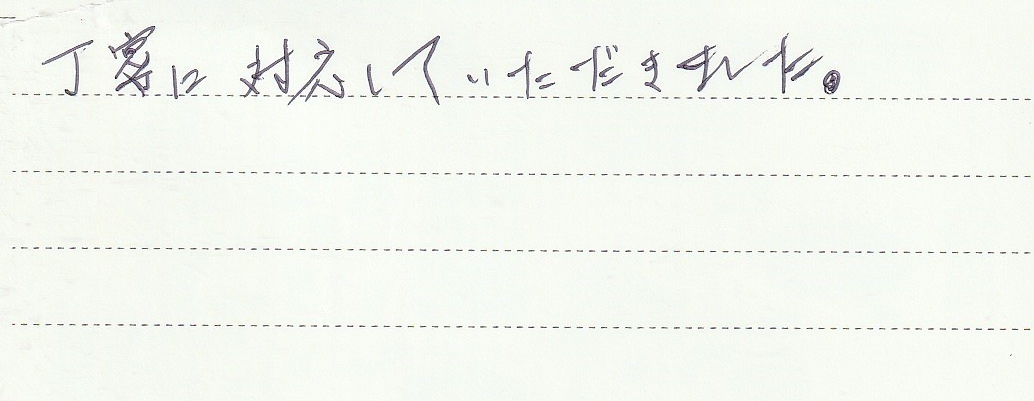 丁寧に対応していただきました。